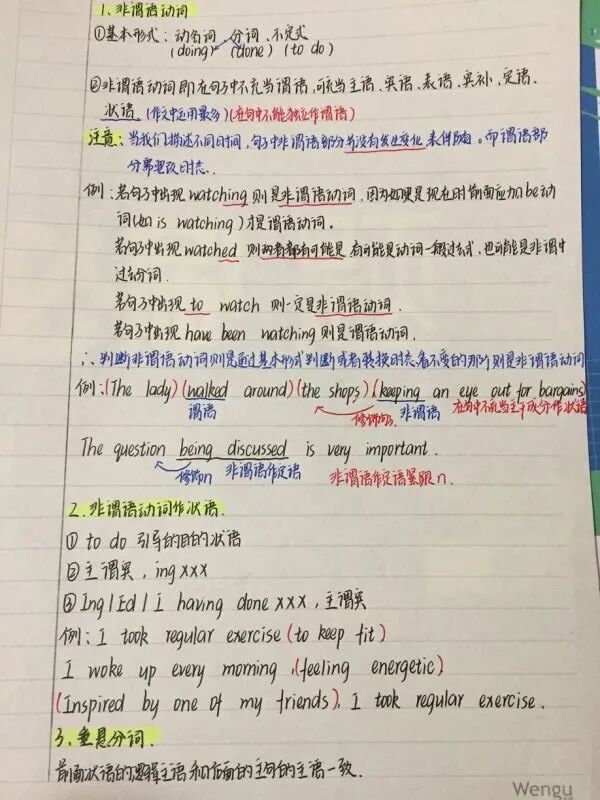 1、非谓语动词
①基本形式：动名词、分词、不定式
(doing) (done) (to do)
②非谓语动词即在句子中不充当谓语，可充当主语、宾语、表语、宾补、定语、
状语。(作文中运用最多)(在句中不能独立作谓语)
注意：当我们描述不同时间，句子中非谓语部分并没有发生变化，而谓语部
分需更改时态.
例：若句子中出现 watching 则是非谓语动词，因为如果是现在时前面应加be动
词(如 is watching)才是谓语动词。
若句子中出现 watched 则两者都有可能是，有可能是动词一般过去式，也可能是非谓中
过去分词.
若句子中出现 to watch 则一定是非谓语动词.
若句子中出现 have been watching 则是谓语动词.
∴判断非谓语动词则是通过基本形式判断或者转换时态，看不变的那个则是非谓语动词
例：(The lady)(walked around)(the shops),(keeping an eye out for bargains)
谓语 修饰句 非谓语 在句中不充当主干成分作状语
The question being discussed is very important.
修饰n 非谓语作定语 非谓语作定语紧跟n.
2.非谓语动词作状语
① to do 引导的目的状语
②主谓宾，ing xxx
③ Ing / Ed / I having done xxx，主谓宾
例：I took regular exercise (to keep fit)
I woke up every morning,(feeling energetic)
(Inspired by one of my friends), I took regular exercise.
3.垂悬分词.
前面状语的逻辑主语和后面的主句的主语一致.
Wengu